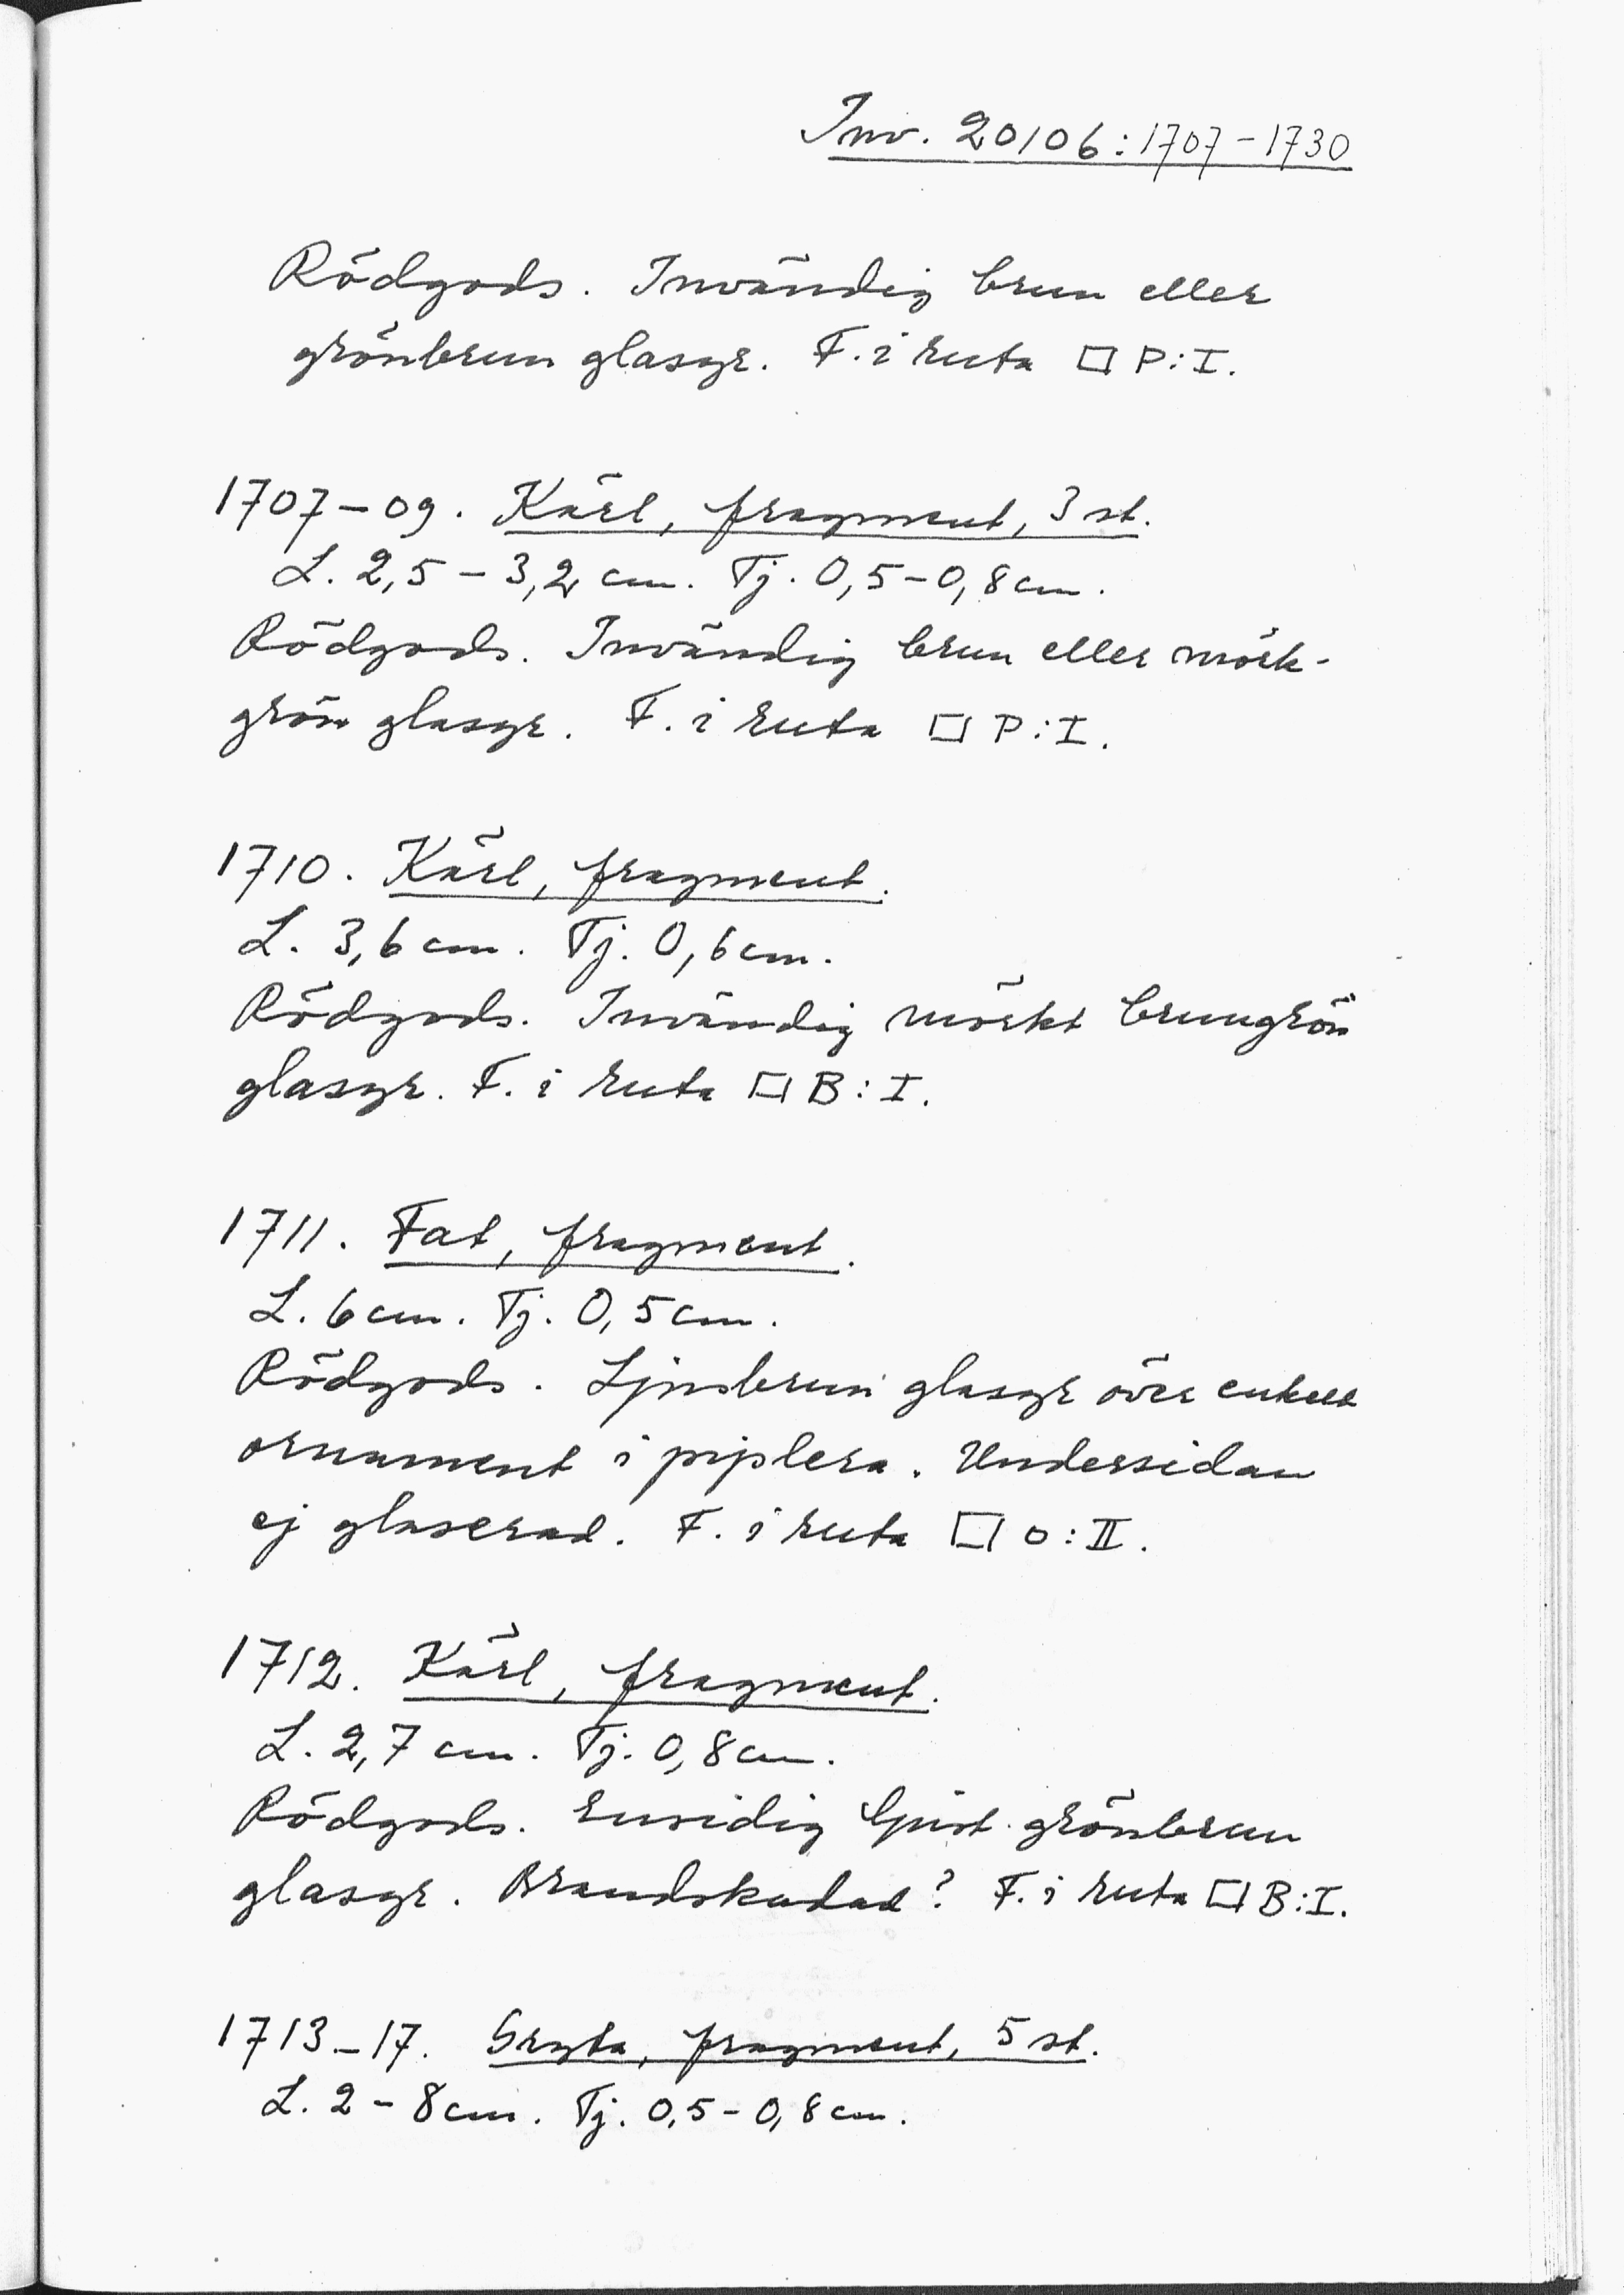 Inv. 20106:1707-1730
Rödgods. Invändig brun eller
grönbrun glasyr. F. i ruta □ P:I.
1707-09. Kärl, fragment, 3 st.
L. 2,5-3,2 cm. Tj. 0,5-0,8 cm.
Rödgods. Invändig brun eller mörk-
grön glasyr. F. i ruta □ P:I.
1710. Kärl, fragment.
L. 3,6 cm. Tj. 0,6 cm.
Rödgods. Invändig mörkt brungrön
glasyr. F. i ruta □ B:I.
1711. Fat, fragment.
L. 6 cm. Tj. 0,5 cm.
Rödgods. Ljusbrun glasyr över enkelt
ornament i piplera. Undersidan
ej glaserad. F. i ruta □ O:II.
1712. Kärl, fragment.
L. 2,7 cm. Tj. 0,8 cm.
Rödgods. Ensidig ljust grönbrun
glasyr. Brandskadad? F. i ruta □ B:I.
1713-17. Gryta, fragment, 5 st.
L. 2-8 cm. Tj. 0,5-0,8 cm.